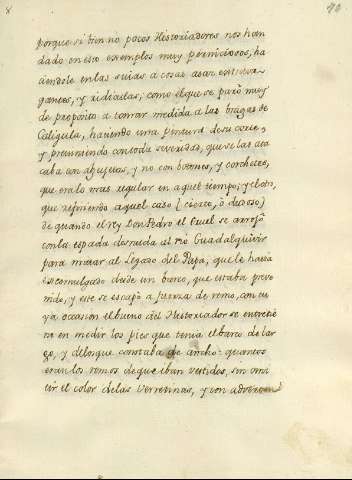 8 90
porque si bien no pocos Historiadores nos han
dado en esto exemplos muy perniciosos; ha
ciendole en las suias a cosas asaz extrava-
gantes, y ridiculas; como el que se paró muy
de proposito a tomar medida a las bragas de
Caligula, haciendo una pintura de su corte,
y previniendo con toda severidad, que se las ata
caba con abujetas, y no con botones, y corchetes,
que era lo mas regular en aquel tiempo; y el otro,
que refiriendo aquel caso (cierto, ò dudoso)
de quando el rey Don Pedro el Cruel se arrojó
con la espada desnuda al rio Guadalquivir
para matar al Legado del Papa, que le havia
excomulgado desde un barco, que estaba preve
nido, y este se escapó a fuerza de remo, con cu
ya ocasion el bueno del Historiador se entretie
ne en medir los pies que tenia el barco de lar
go, y de los que constaba de ancho: quantos
eran los remos de que iban vestidos, sin omi
tir el color de las